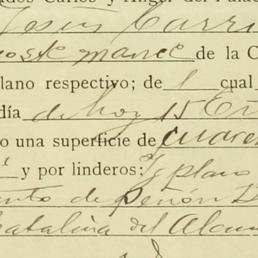 dos Carlos y Angel del Palac
Jesus Carri
de la C
lano respectivo; de l cual
día de hoy 15 En
o una superficie de cuaren
y por linderos: plano
de Peñón
atalina del Alam